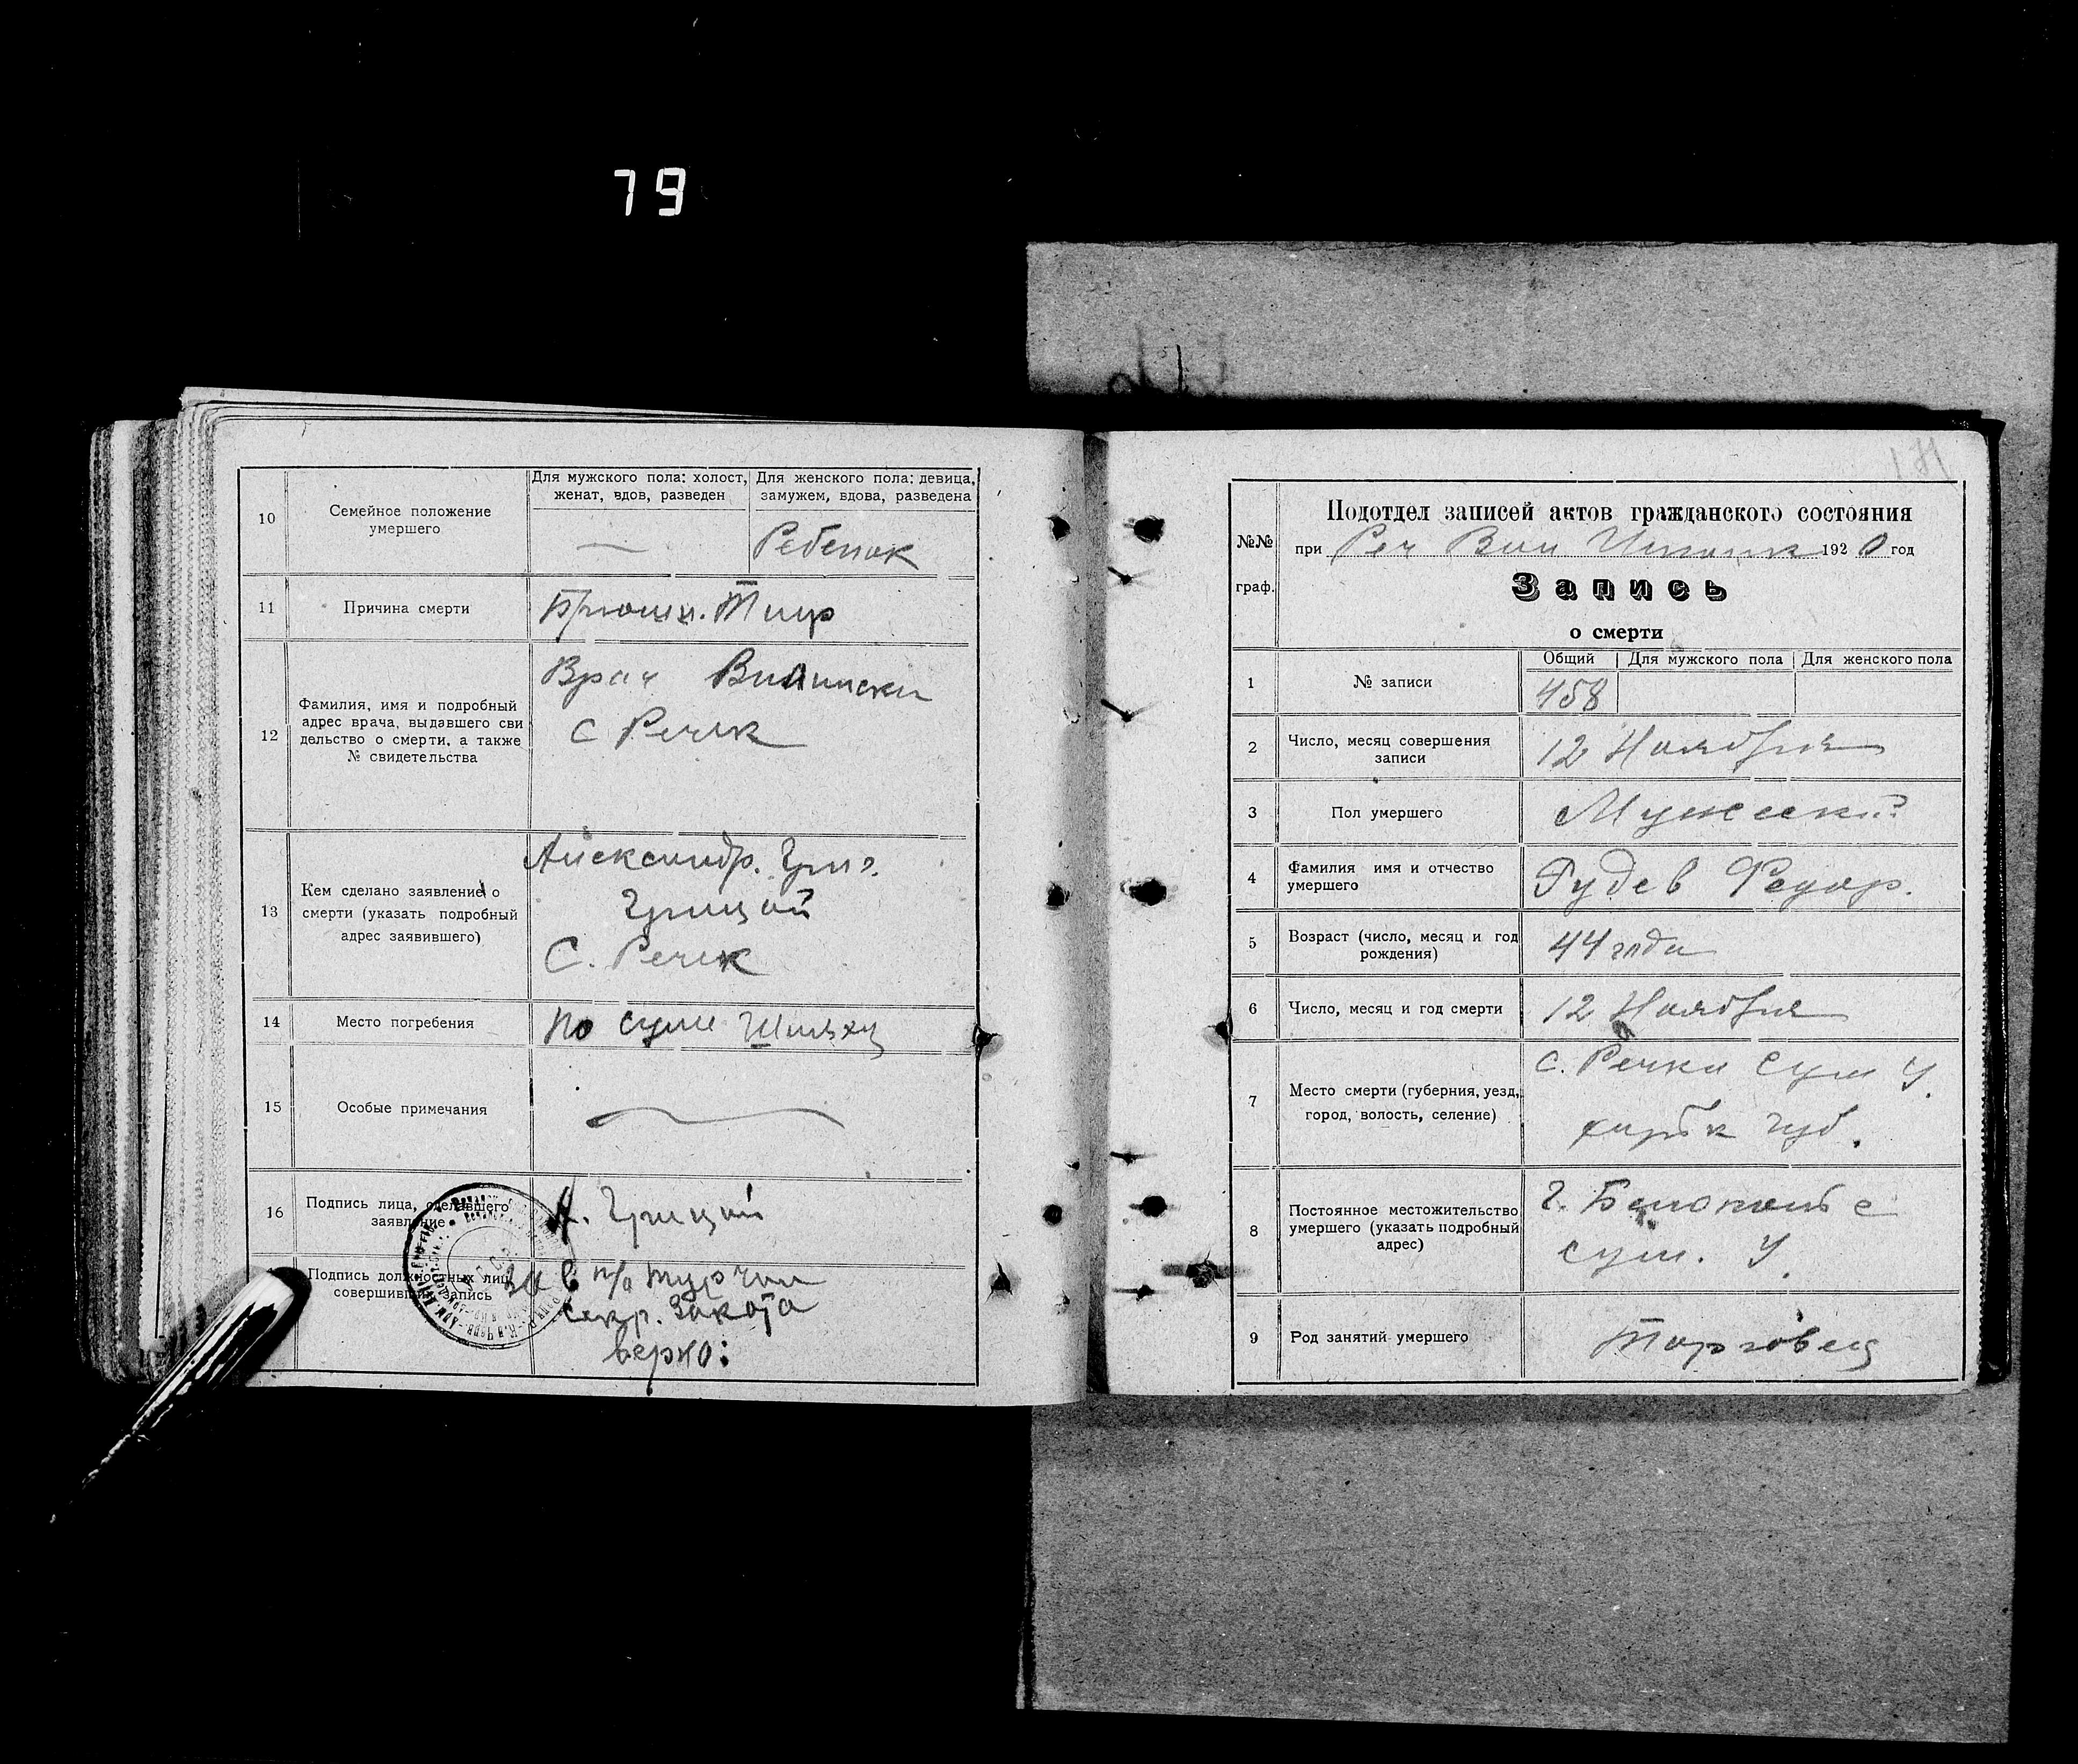 79
10
Семейное положение
умершего
Для мужского пола: холост,
женат, вдов, разведен
Для женского пола: девица,
замужем, вдова, разведена
—
Ребенок
11
Причина смерти
Брюшн. Тиф
12
Фамилия, имя и подробный
адрес врача, выдавшего сви
дельство о смерти, а также
№ свидетельства
Врач
с Речк
13
Кем сделано заявление о
смерти (указать подробный
адрес заявившего)
Александр. Григ.
Грицай
С. Речк
14
Место погребения
по сумс Шляху
15
Особые примечания
16
Подпись лица, сделавшего
заявление
А. Грицай
Подпись должностных лиц
совершивших запись
Зав п/о
секр.
верно:
Подотдел записей актов гражданского состояния
№№
граф.
при Реч Вол 1920 год
Запись
о смерти
1
№ записи
Общий
Для мужского пола
Для женского пола
458
2
Число, месяц совершения
записи
12 Ноября
3
Пол умершего
Мужеский
4
Фамилия имя и отчество
умершего
Гудев Федор.
5
Возраст (число, месяц и год
рождения)
44 года
6
Число, месяц и год смерти
12 Ноября
7
Место смерти (губерния, уезд,
город, волость, селение)
с. Речки Сум у.
харьк губ.
8
Постоянное местожительство
умершего (указать подробный
адрес)
г. Белополье
сум. у.
9
Род занятий умершего
Торговец